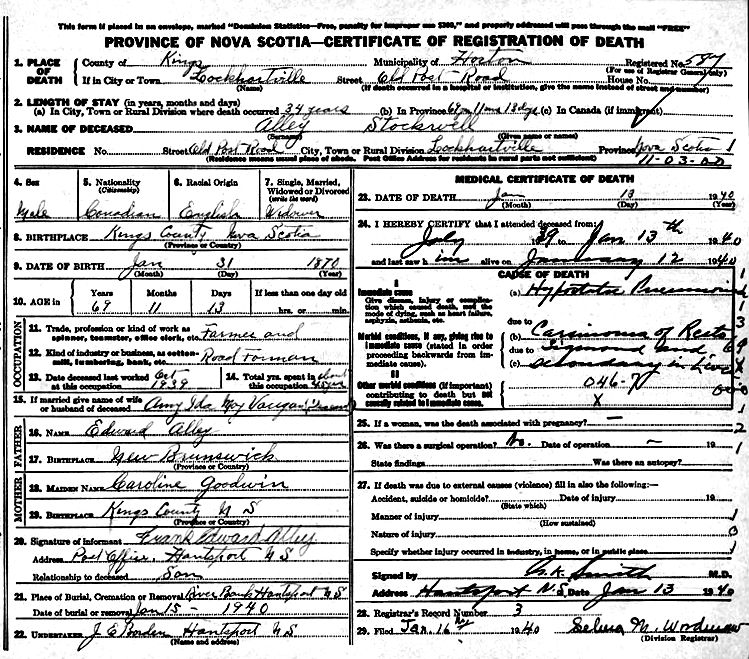 This form if placed in an envelope, marked "Dominion Statistics—Free, penalty for improper use $300," and properly addressed will pass through the mail "FREE"
PROVINCE OF NOVA SCOTIA—CERTIFICATE OF REGISTRATION OF DEATH
1. PLACE OF DEATH County of Kings Municipality of Horton Registered No. 587
(For use of Registrar General only)
If in City or Town Lockhartville Street Old Post Road House No.
(Name) (If death occurred in a hospital or institution, give the name instead of street and number)
2. LENGTH OF STAY (in years, months and days)
(a) In City, Town or Rural Division where death occurred 34 years (b) In Province 69 yrs 11 mos 13 dys. (c) In Canada (if immigrant)
3. NAME OF DECEASED Alley Stockwell
(Surname) (Given name or names)
RESIDENCE No. Street Old Post Road City, Town or Rural Division Lockhartville Province Nova Scotia 1
(Residence means usual place of abode. Post Office Address for residents in rural parts not sufficient) 11-03-
4. Sex Male
5. Nationality (Citizenship) Canadian
6. Racial Origin English
7. Single, Married, Widowed or Divorced (write the word) Widower
8. BIRTHPLACE Kings County Nova Scotia
(Province or Country)
9. DATE OF BIRTH Jan 31 1870
(Month) (Day) (Year)
10. AGE in Years Months Days If less than one day old
69 11 13 hrs. or min.
OCCUPATION
11. Trade, profession or kind of work as spinner, teamster, office clerk, etc. Farmer and
12. Kind of industry or business, as cotton-mill, lumbering, bank, etc. Road Forman
13. Date deceased last worked at this occupation Oct 1939
14. Total yrs. spent in this occupation about
15. If married give name of wife or husband of deceased Amy Ida May Vaughan
FATHER
16. NAME Edward Alley
17. BIRTHPLACE New Brunswick
(Province or Country)
MOTHER
18. MAIDEN NAME Caroline Goodwin
19. BIRTHPLACE Kings County N S
(Province or Country)
20. Signature of informant Frank Edward Alley
Address Post Office, Hantsport N S
Relationship to deceased Son
21. Place of Burial, Cremation or Removal River Bank Hantsport N S
Date of burial or removal Jan 15 - 1940
22. UNDERTAKER J E Borden Hantsport N S
(Name and address)
MEDICAL CERTIFICATE OF DEATH
23. DATE OF DEATH Jan 13 1940
(Month) (Day) (Year)
24. I HEREBY CERTIFY that I attended deceased from:
July 39 to Jan 13th 1940
and last saw h im alive on January 12 1940
CAUSE OF DEATH
I
Immediate cause (a) Hypostatic Pneumonia
Give disease, injury or complication which caused death, not the mode of dying, such as heart failure, asphyxia, asthenia, etc.
due to
Morbid conditions, if any, giving rise to immediate cause (stated in order proceeding backwards from immediate cause). (b) Carcinoma of Recto
due to Sigmoid and
(c) secondary in Liver
II
Other morbid conditions (if important) contributing to death but not causally related to immediate cause. 046-
X
25. If a woman, was the death associated with pregnancy? —
26. Was there a surgical operation? No. Date of operation ~ 19
State findings Was there an autopsy?
27. If death was due to external causes (violence) fill in also the following:—
Accident, suicide or homicide? Date of injury 19
(State which)
Manner of injury
(How sustained)
Nature of injury
Specify whether injury occurred in industry, in home, or in public place.
Signed by Smith M.D.
Address Hantsport N.S. Date Jan 13 1940
28. Registrar's Record Number 3
29. Filed Jan. 16 1940 Selina M. Woodman
(Division Registrar)